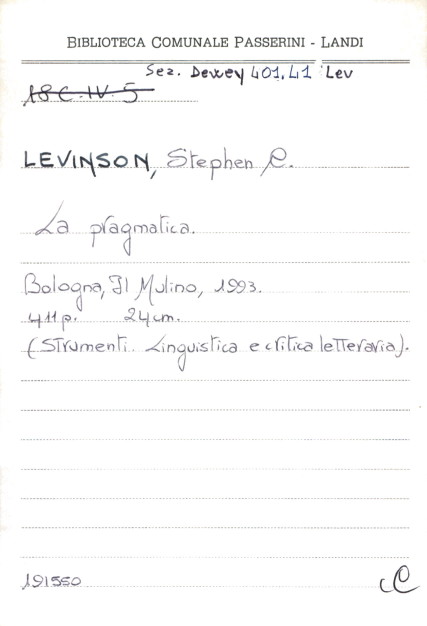 BIBLIOTECA COMUNALE PASSERINI - LANDI
Sez. Dewey 401.41 Lev
18 C. IV. 5
LEVINSON, Stephen C.
La pragmatica.
Bologna, Il Mulino, 1993.
411 p. 24 cm.
(Strumenti. Linguistica e critica letteraria).
191550
C